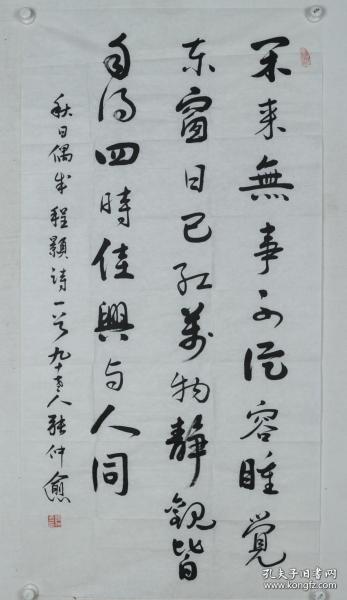 闲来無事不从容睡觉
东窗日已红萬物靜觀皆
自得四時佳興与人同
秋日偶成程顥诗一首九十老人張仲愈
孔夫子旧书网